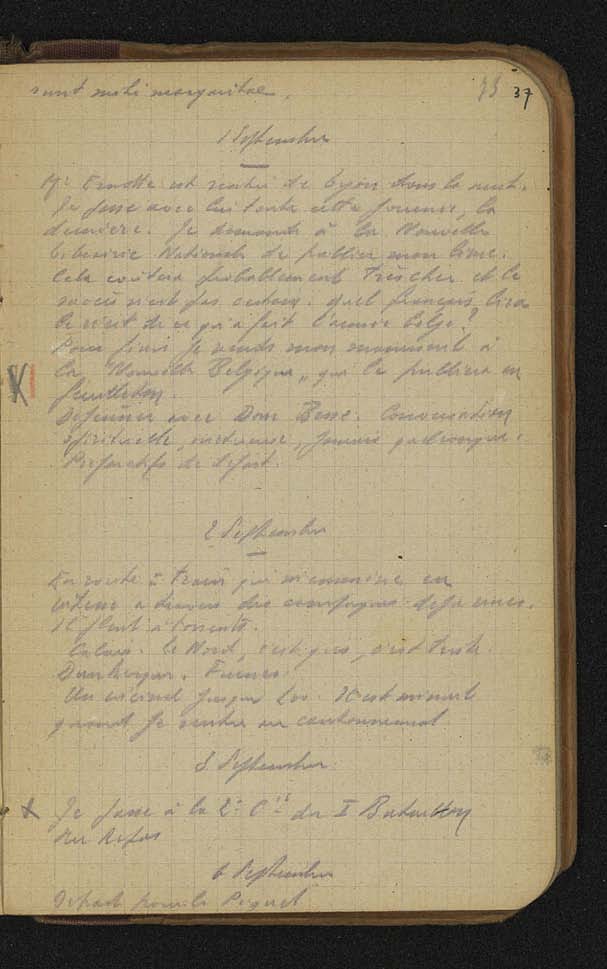 sunt mihi margaritae.
73 37
1 Septembre
Mr Ernotte est rentré de Lyon dans la nuit.
Je passe avec lui toute cette journée, la
dernière. Je demande à la Nouvelle
Librairie Nationale de publier mon livre.
Cela coûtera probablement très cher et le
succès n'est pas certain. Quel français lira
le récit de ce qu'a fait l'armée belge?
Pour finir je vends mon manuscrit à
la Nouvelle Belgique" qui le publiera en
feuilleton.
Déjeuner avec Dom Besse. Conversation
spirituelle, jamais quelconque.
Préparatifs de départ.
2 Septembre
En route. Train qui m'emmène en
vitesse à travers des campagnes déjà
Il pleut à torrents.
Calais. Le Nord, c'est gris, c'est triste.
Dunkerque. Furnes.
Un jusque Loo. Il est minuit
quand je rentre au cantonnement
Septembre
x Je passe à la 2e Cie du I Bataillon
Au Repos
6 Septembre
Départ pour le Piquet